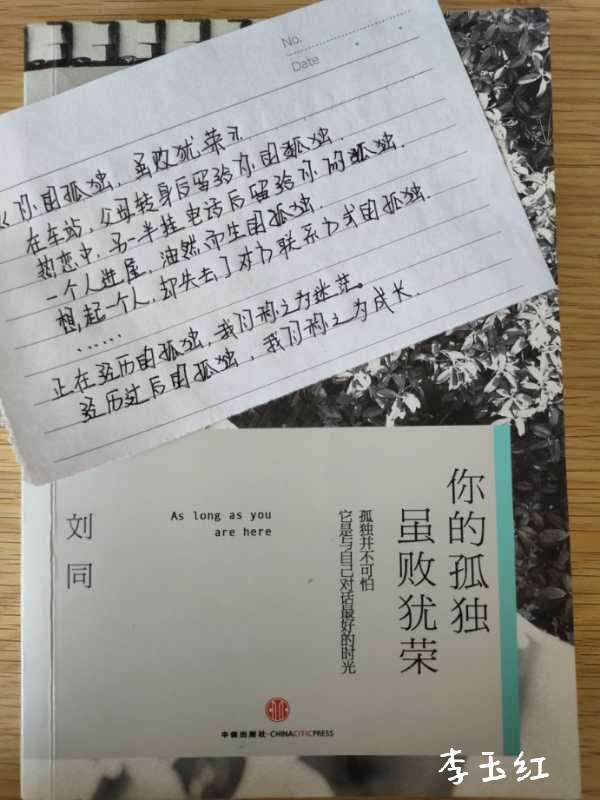 No.
Date
《你的孤独，虽败犹荣》
在车站，父母转身后留给你的孤独．
热恋中，另一半挂电话后留给你的孤独．
一个人进屋，油然而生的孤独．
想起一个人，却失去了对方联系方式的孤独．
……
正在经历的孤独，我们称之为迷茫。
经历过后的孤独，我们称之为成长．
你的孤独
虽败犹荣
孤独并不可怕
它是与自己对话最好的时光
As long as you
are here
刘同
中信出版社·CHINACITICPRESS
李玉红